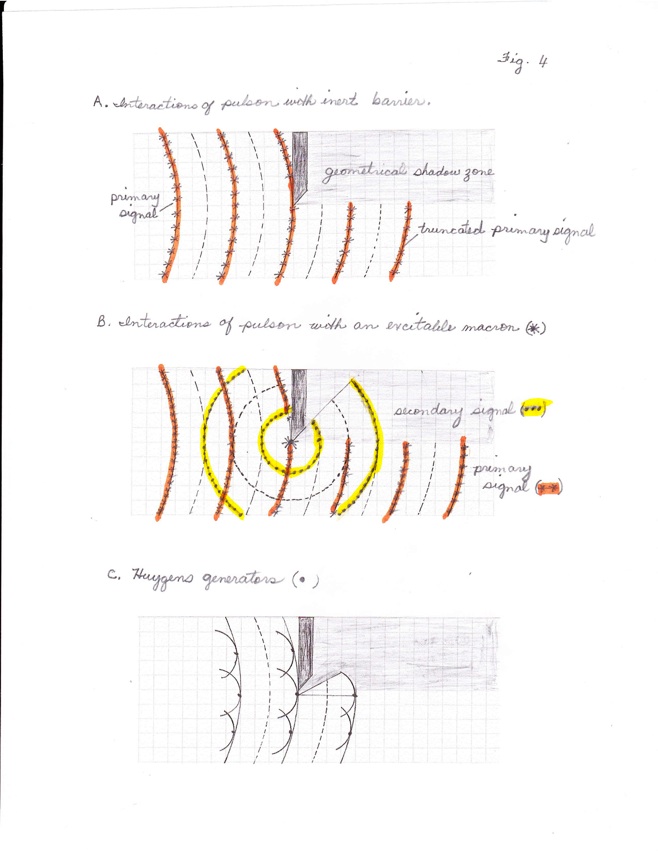 Fig. 4
A. Interactions of pulson with inert barrier.
geometrical shadow zone
primary
signal
truncated primary signal
B. Interactions of pulson with an excitable macron (*)
secondary signal (•••)
primary
signal (**)
C. Huygens generators (•)